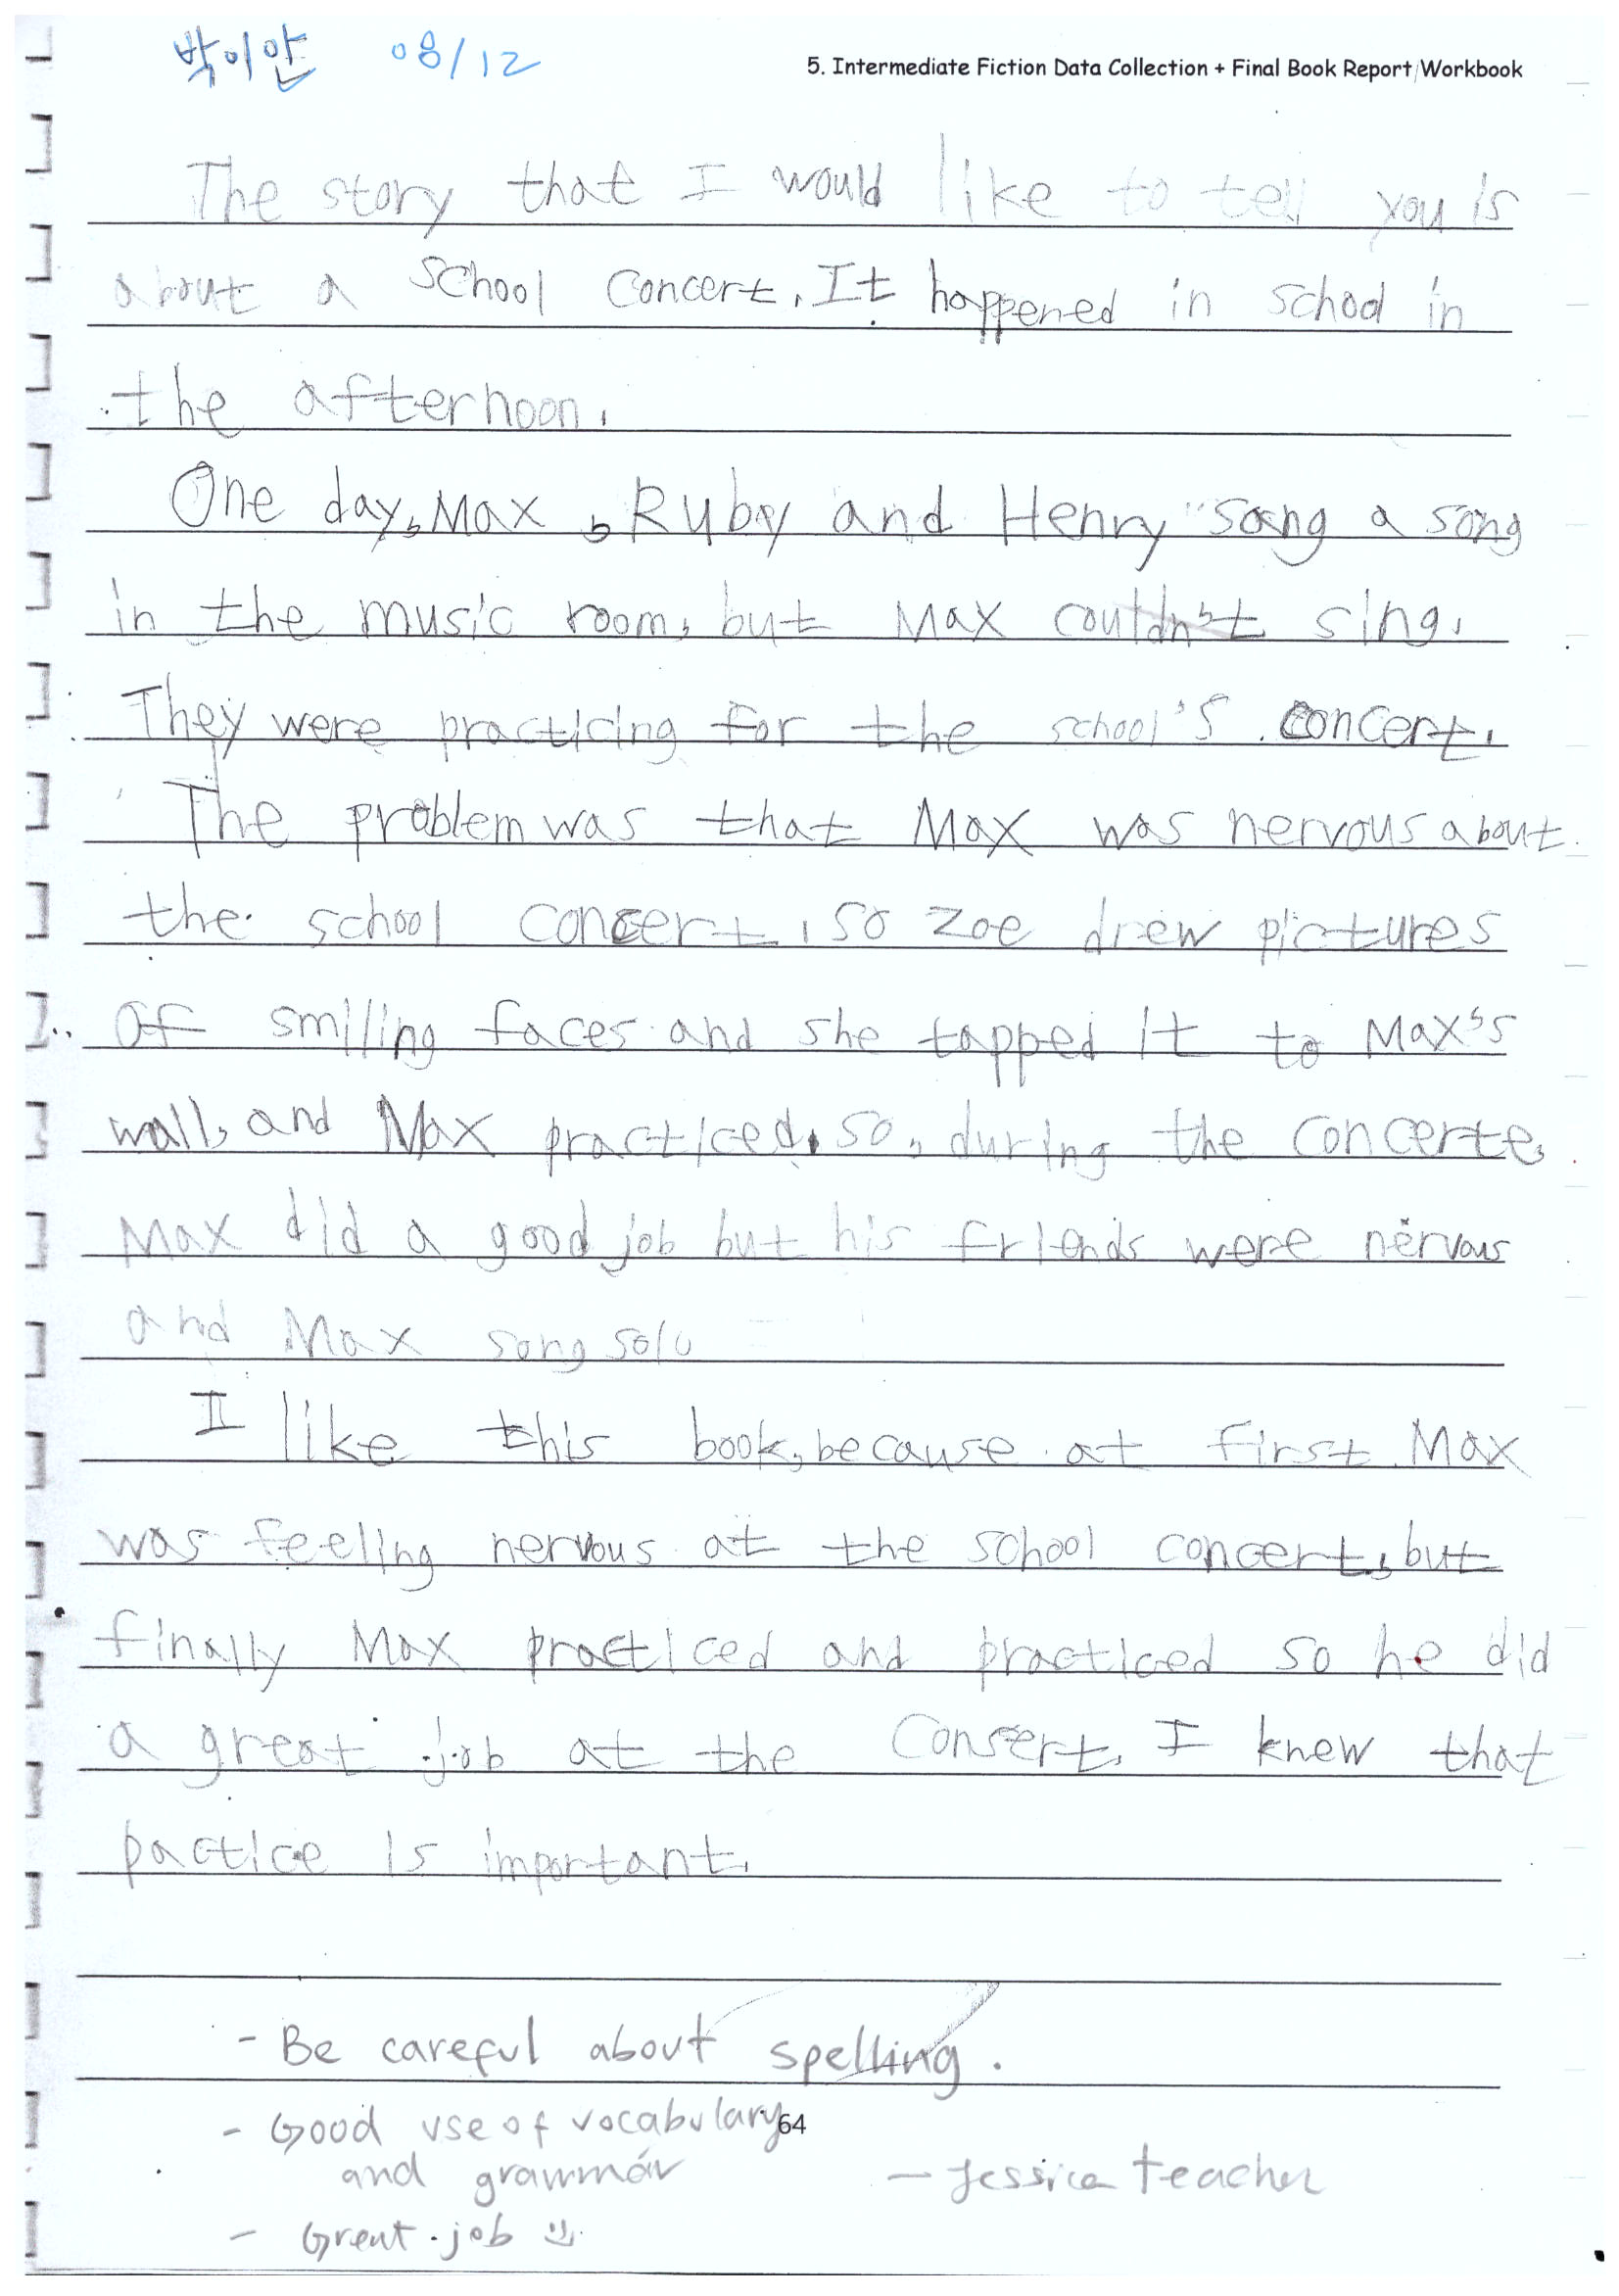 박이안 08/12
5. Intermediate Fiction Data Collection + Final Book Report Workbook
The story that I would like to tell you is
about a school concert. It happened in school in
the afternoon.
One day, Max, Ruby and Henry sang a song
in the music room, but Max couldn't sing.
They were practicing for the school's concert.
The problem was that Max was nervous about
the school concert, so Zoe drew pictures
of smiling faces and she tapped it to Max's
wall, and Max practiced. so, during the concerte,
Max did a good job but his friends were nervous
and Max sang solo
I like this book, because at first Max
was feeling nervous at the school concert, but
finally Max practiced and practiced so he did
a great job at the consert. I knew that
pactice is important.
- Be careful about spelling.
- Good use of vocabulary
64
and grammar
- Jessica teacher
- Great job